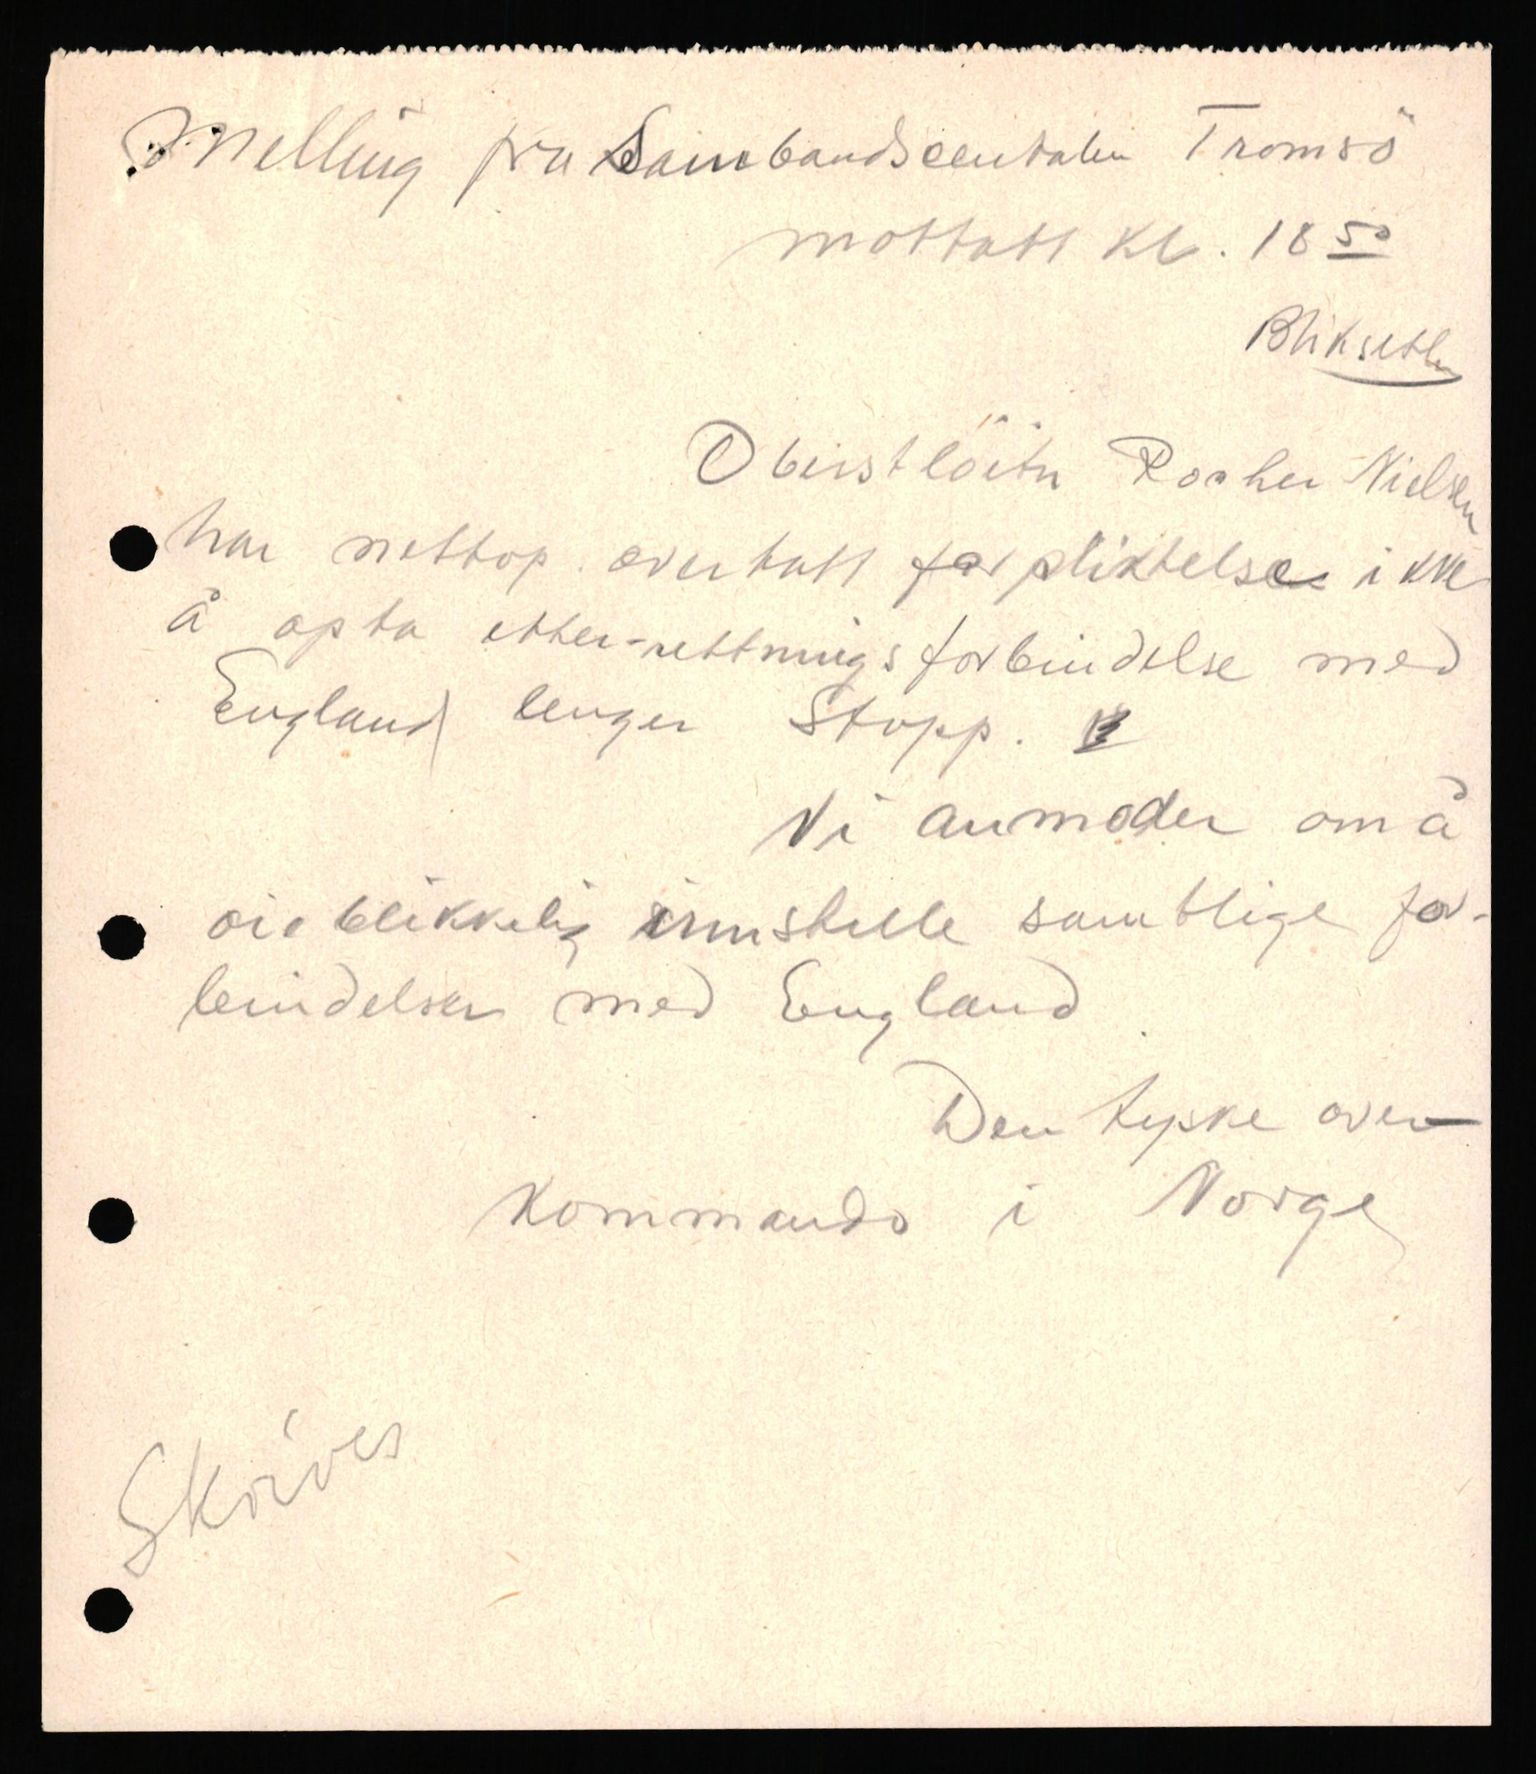 Melling fra Sambandscentalen Tromsö
mottatt kl. 18 50
Obeistlöitn Rosher Nielsen
har nettop overtatt forpliktelse ikke
å opta etter-rettnings forbindelse med
England lenger Stopp.
Vi anmoder om å
øieblikkelig innstille samtlige for-
bindelser med England
Den tyske over-
kommando i Norge